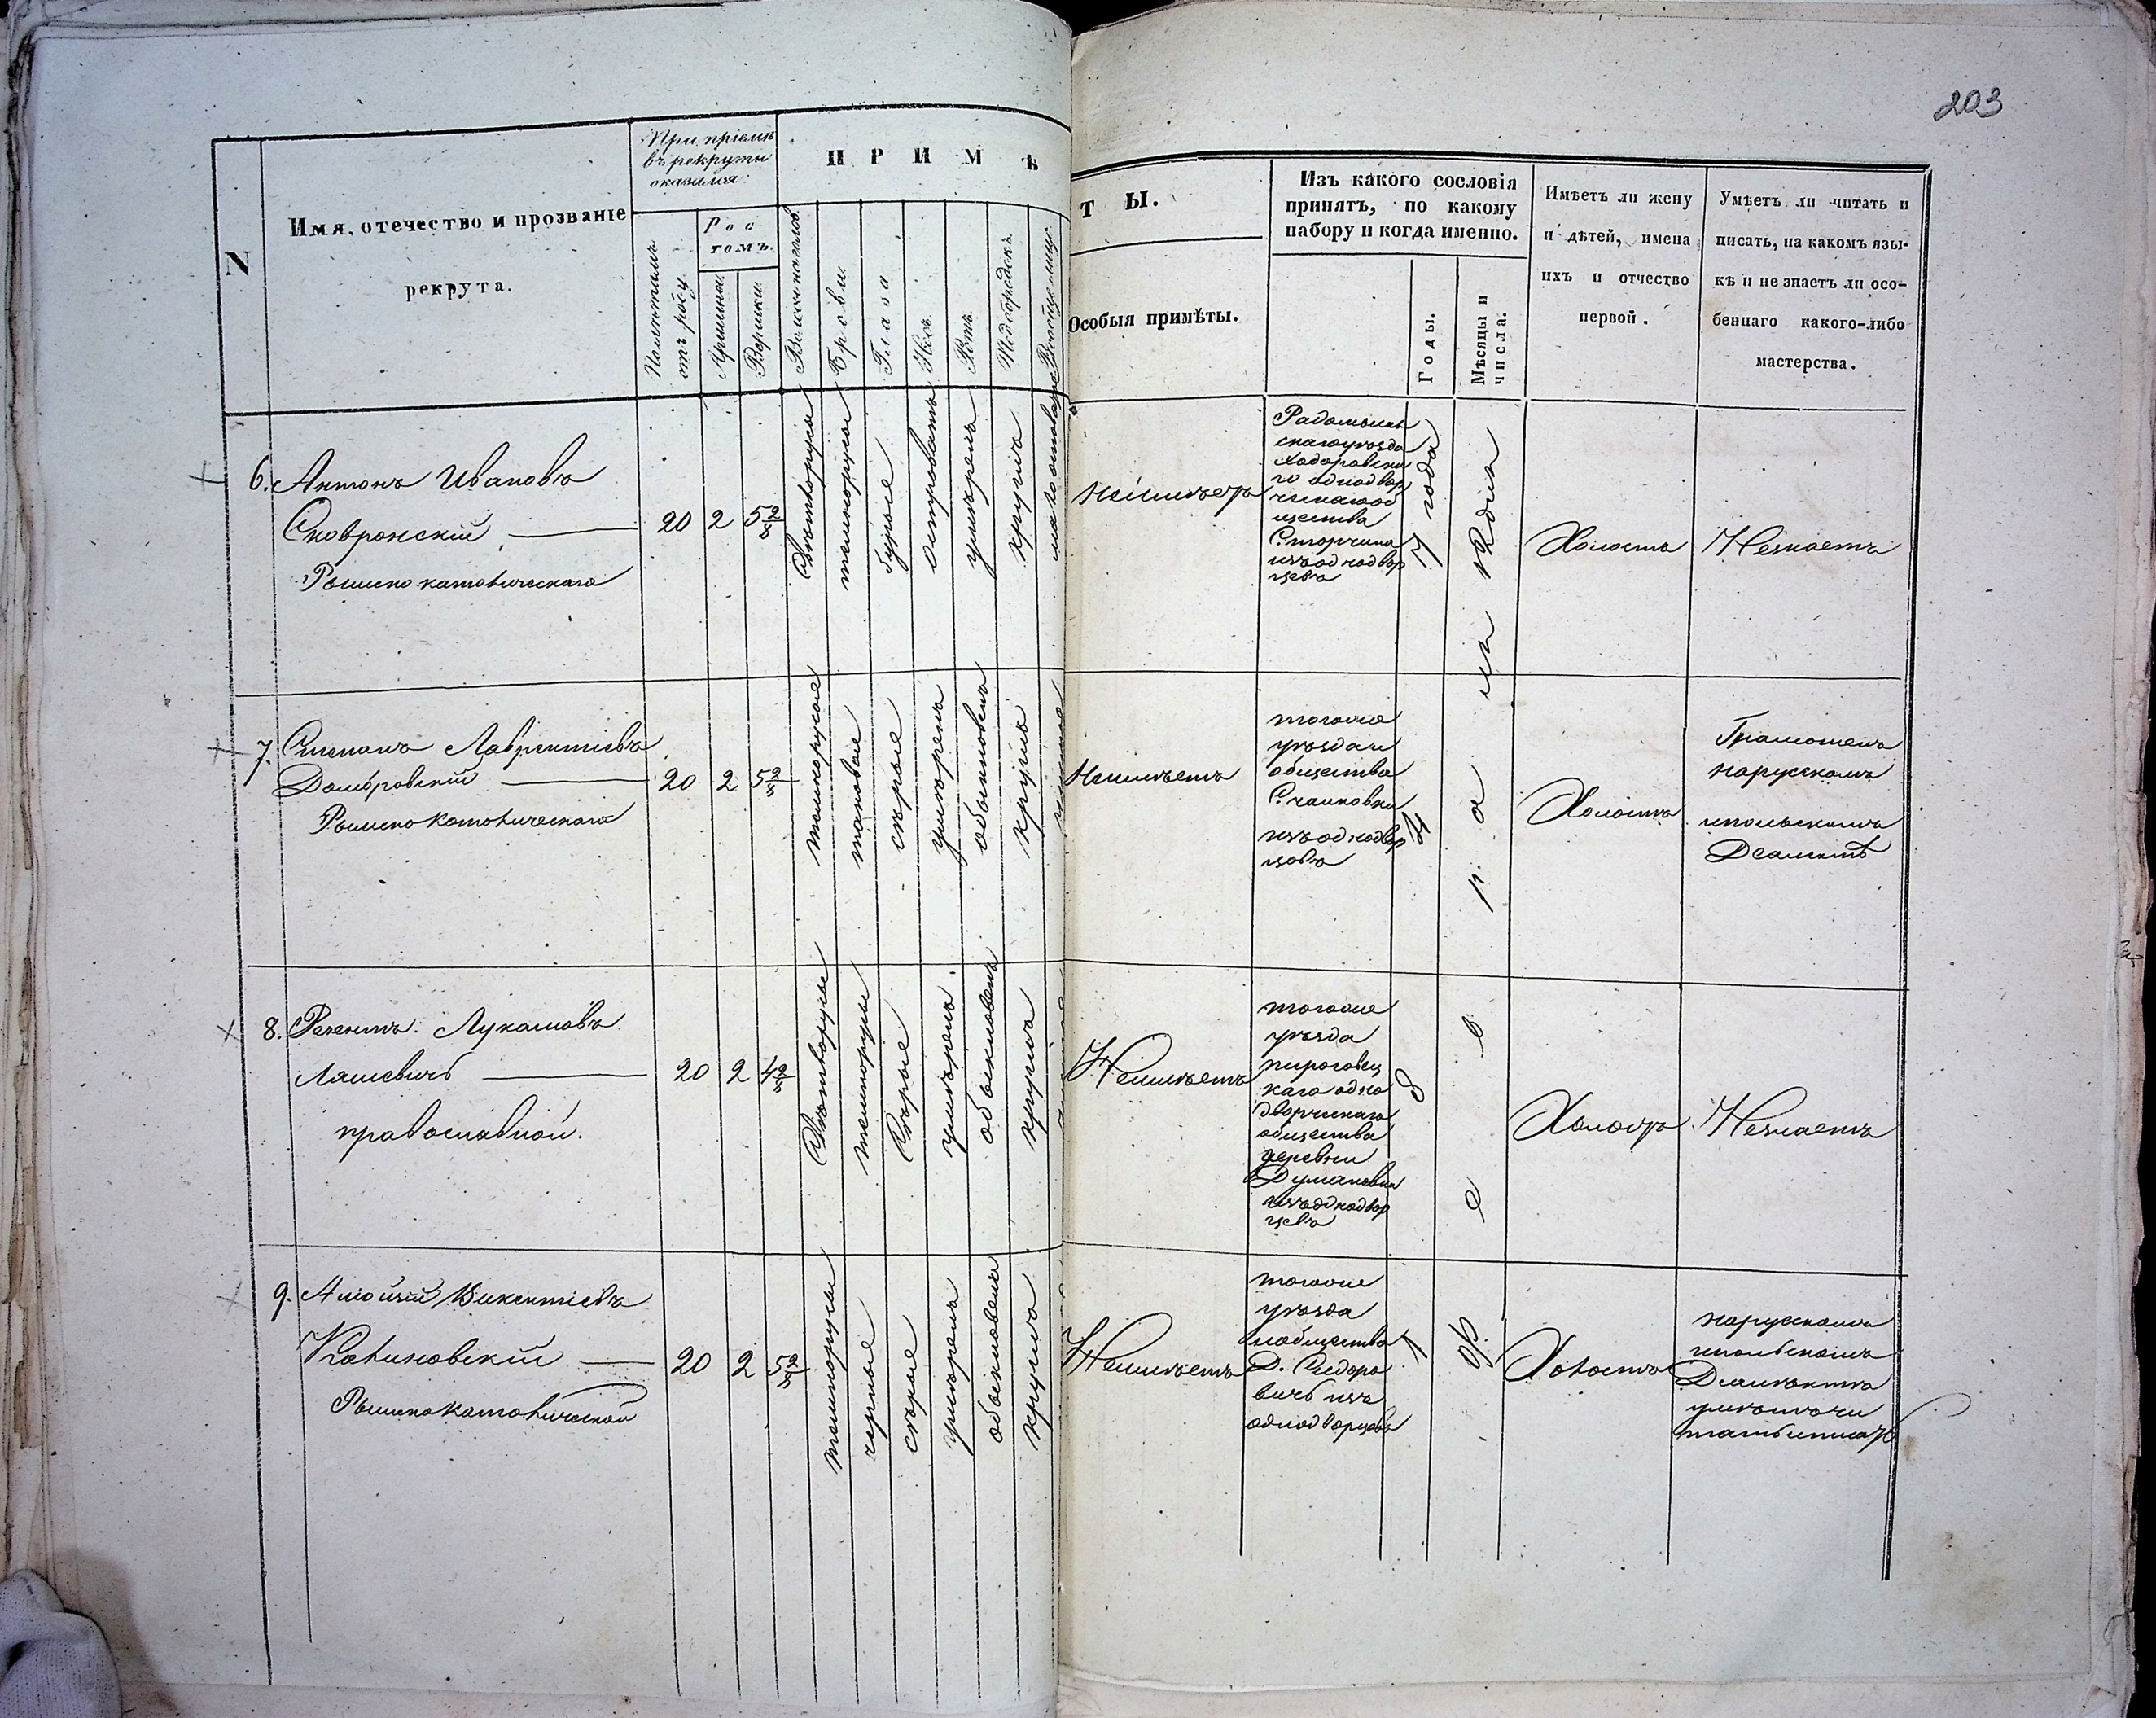 203
N
Имя, отечество и прозваніе
рекрута.
При пріемѣ
въ рекруты
оказался:
Полнымъ
отъ роду
Рос
томъ.
Аршины.
Вершки.
П Р И М Ѣ
Т Ы.
Волосы на головѣ
Брови.
Глаза
Носъ
Ротъ
Подбородокъ
Вообще лицо
Особыя примѣты.
Изъ какого сословія
принятъ, по какому
набору и когда именно.
Годы.
Мѣсяцы и
числа.
Имѣетъ ли жену
и дѣтей, имена
ихъ и отчество
первой.
Умѣетъ ли читать и
писать, на какомъ язы-
кѣ и не знаетъ ли осо-
беннаго какого-либо
мастерства.
6. Антонъ Ивановъ
Сковронскій
Римско католическаго
20 2 5 2/8
Свѣтлорусы
темнорусы
бурые
островатъ
умѣренъ
кругла
Неимѣетъ
Радомысль
скаго уѣзда
Ходоровска
го однодвор
ческаго об
щества
С. торчина
изъ однодвор
цевъ
года
Холостъ
Незнаетъ
7. Степанъ Лаврентіевъ
Домбровскій
Римско Католическаго
20 2 5 2/8
темнорусые
таковые
сѣрые
умѣренъ
обыкновенъ
круглъ
Неимѣетъ
тогоже
уѣзда и
общества
С. чайковки
изъ однодвор
цовъ
Холостъ
Грамотенъ
нарусскомъ
ипольскомъ
8. Лукашовъ
Ляшевичъ
православной.
20 2 4 2/8
Свѣтлорусы
темнорусы
Сѣрые
умѣренъ
обыкновенъ
кругла
Неимѣетъ
тогоже
уѣзда
пироговец
каго одно
дворческаго
общества
деревни
Думановки
изъ однодвор
цевъ
Холостъ
Незнаетъ
9. Алойзій Викентіевъ
Калиновскій
Римско Католической
20 2 5 2/8
темнорусы
черные
сѣрые
умѣренъ
обыкновенъ
кругла
Неимѣетъ
тогоже
уѣзда
иобщества
Д. Сидоро
вичъ изъ
однодворцовъ
Холостъ
нарусскомъ
ипольскомъ
Діалектѣ
умѣетъ чи
тать иписать